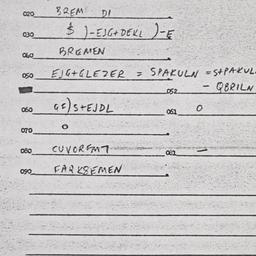 020 BREM DI
030 $ )-EJG+DEKL )-E
040 BREMEN
050 EJG+GLEZER = SPAKULN =S+PAKUL
052 - QBRILN
060 GE)S+EJDL 061 0
070 0
080 CUVOREMT 082 -
090 FARKSEMEN